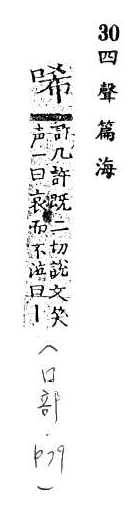 30四聲篇海
唏
許几許既二切說文笑
声一曰哀而不泣曰丨
（口部．p79）